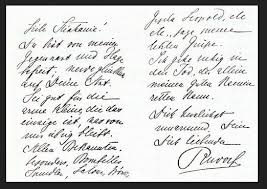 Liebe Stephanie!
Du bist von meiner
Gegenwart und Plage
befreit; werde glücklich
auf Deine Art.
Sei gut für die
arme Kleine, die das
einzige ist, was von
mir übrig bleibt.
Allen Bekannten,
besonders Bombelles,
Spindler, Latour,
Gisela, Leopold, etc
etc. sage meine
letzten Grüße.
Ich gehe ruhig in
den Tod, der allein
meinen guten Namen
retten kann.
Dich herzlichst
umarmend, Dein
Dich liebender
Rudolf